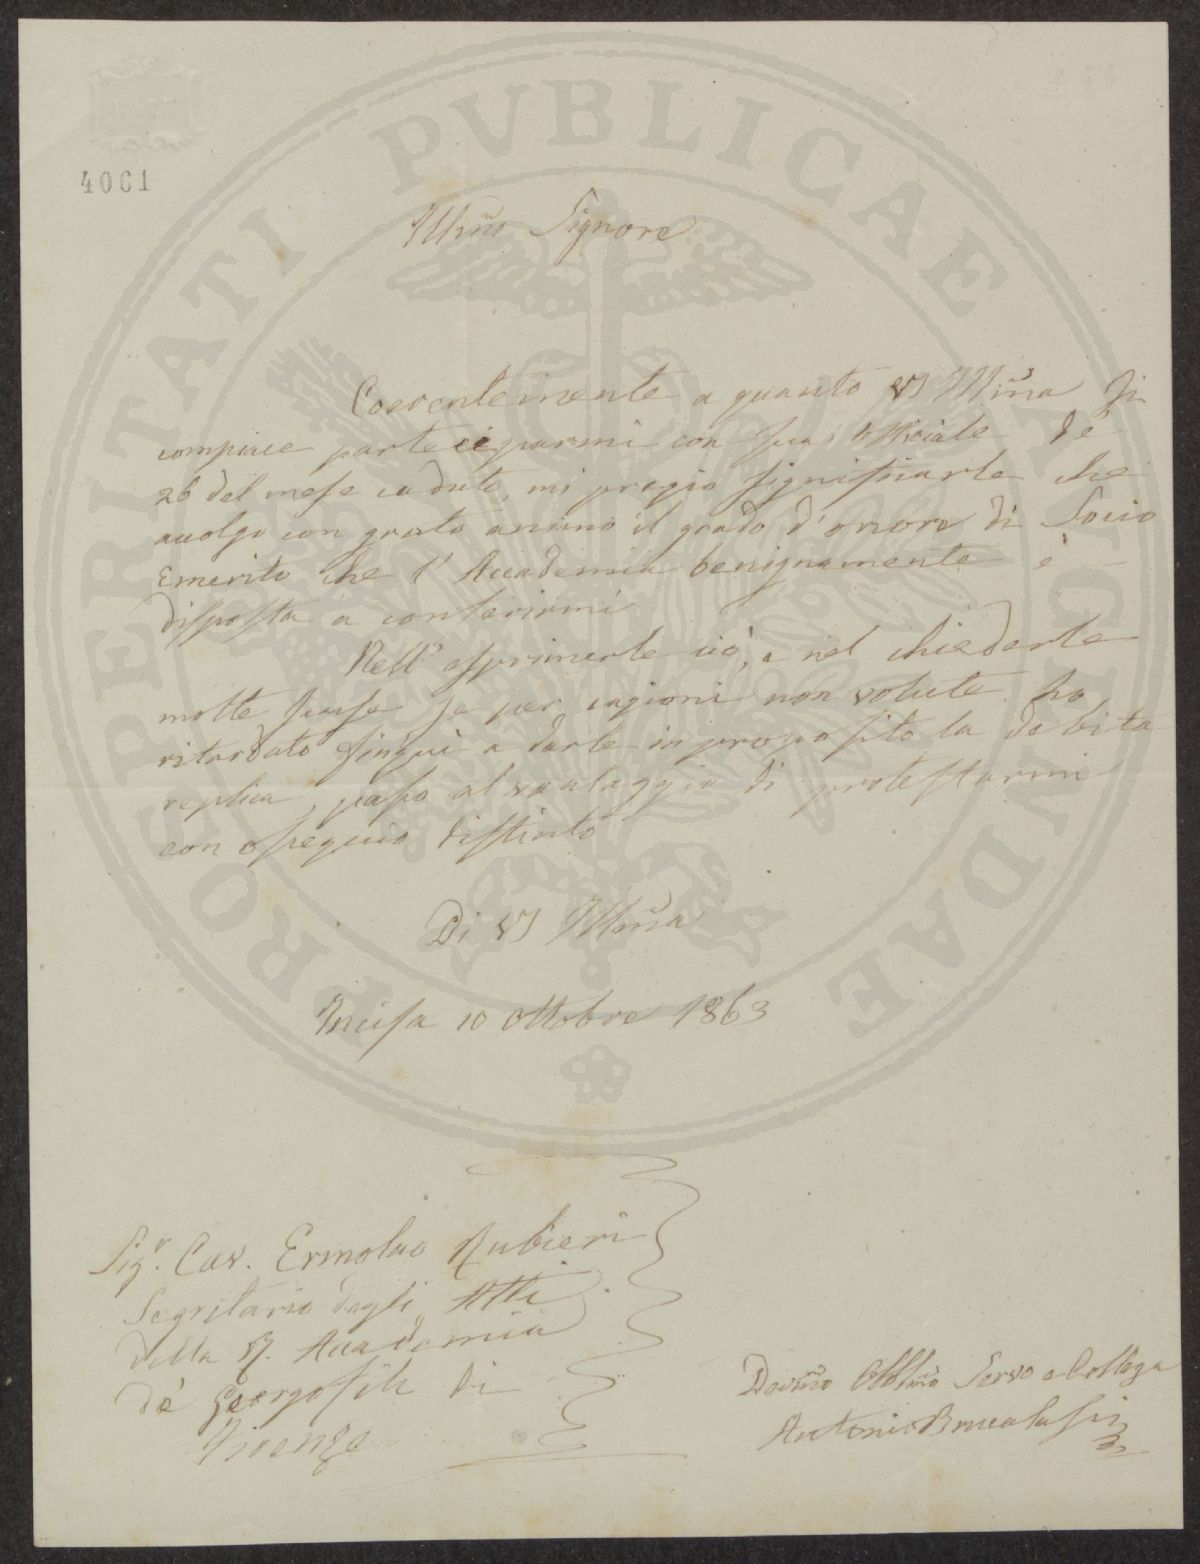 4061
Illmo Signore
Coerentemente a quanto VS Illma si
compiace parteciparmi con sua officiale de'
26 del mese caduto, mi pregio significarle che
accolgo con grato animo il grado d'onore di Socio
Emerito che l'Accademia benignamente è
disposta a conferirmi
Nell'esprimerle ciò, e nel chiederle
molte scuse se per cagioni non volute ho
ritardato finqui a darle in proposito la debita
replica, passo al vantaggio di protestarmi
con ossequio distinto
Di VS Illma
Incisa 10 Ottobre 1863
Sigr. Cav. Ermolao Rubieri
Segretario degli Atti
della R. Accademia
de' Georgofili di
Firenze
Devmo Obblmo Servo e Collega
Antonio Brucalassi
PROSPERITATI PVBLICAE AVGENDAE